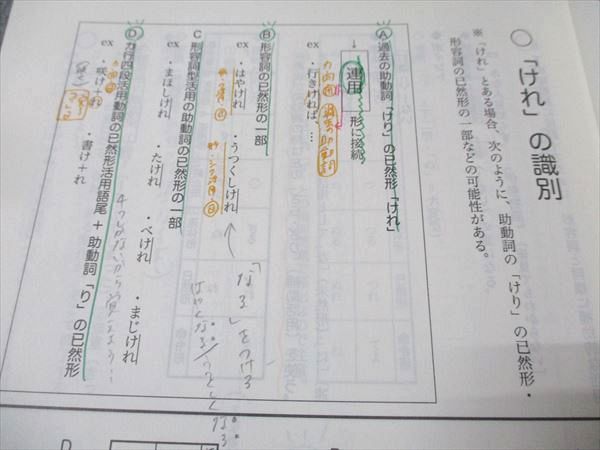 ○「けれ」の識別
※「けれ」とある場合、次のように、助動詞の「けり」の已然形・
形容詞の已然形の一部などの可能性がある。
Ⓐ 過去の助動詞「けり」の已然形「けれ」
↓
連用 形に接続
ex ・行きければ、…
Ⓑ 形容詞の已然形の一部
ex ・はやけれ ・うつくしけれ
「なる」をつける
はやくなる/うつくしくなる
C 形容詞型活用の助動詞の已然形の一部
ex ・まほしけれ ・たけれ ・べけれ ・まじけれ
Ⓓ カ行四段活用動詞の已然形活用語尾 + 助動詞「り」の已然形
ex ・咲けれ ・書け+れ